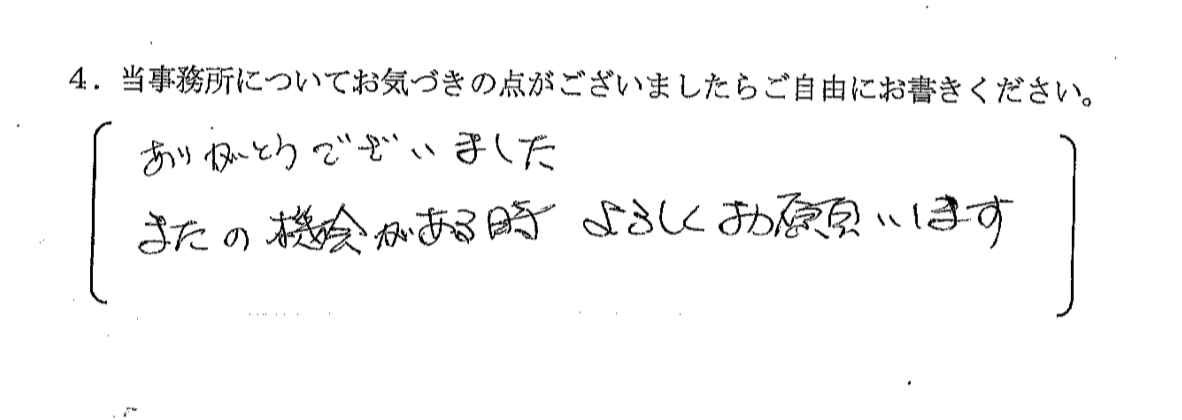 4．当事務所についてお気づきの点がございましたらご自由にお書きください。
ありがとうございました
またの機会がある時 よろしくお願いします